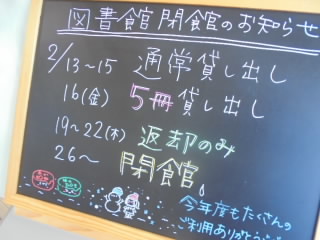 図書館閉館のお知らせ
2/13~15 通常貸し出し
16(金) 5冊貸し出し
19~22(木) 返却のみ
26~ 閉館。
今年度もたくさんの
ご利用ありがとう